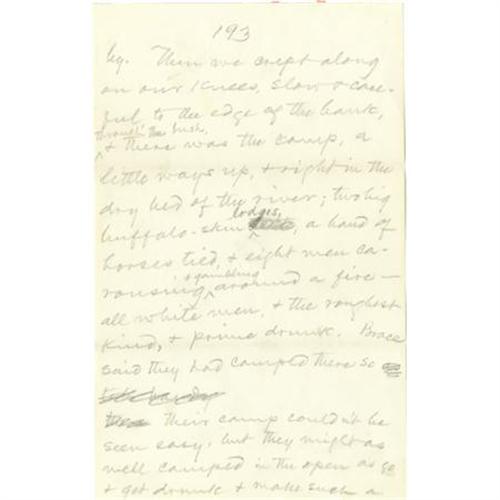 193
by. Then we crept along
on our knees, slow & care-
ful to the edge of the bank,
through the bush,
& there was the camp, a
little ways up, & right in the
dry bed of the river; two big
lodges,
buffalo-skin, a band of
horses tied, & eight men ca-
& gambling
rousing around a fire—
all white men, & the roughest
kind, & prime drunk. Brace
said they had camped there so
Their camp couldn't be
seen easy, but they might as
well camped in the open as go
& get drunk & make such a